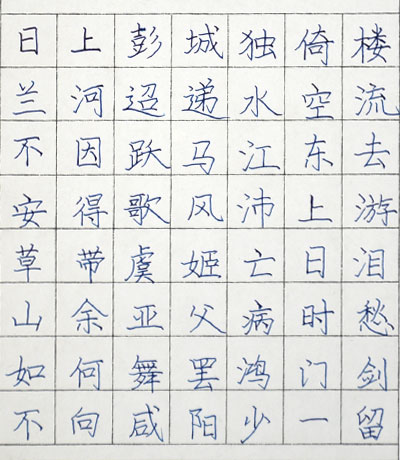 日上彭城独倚楼
兰河迢递水空流
不因跃马江东去
安得歌风沛上游
草带虞姬亡日泪
山余亚父病时愁
如何舞罢鸿门剑
不向咸阳少一留